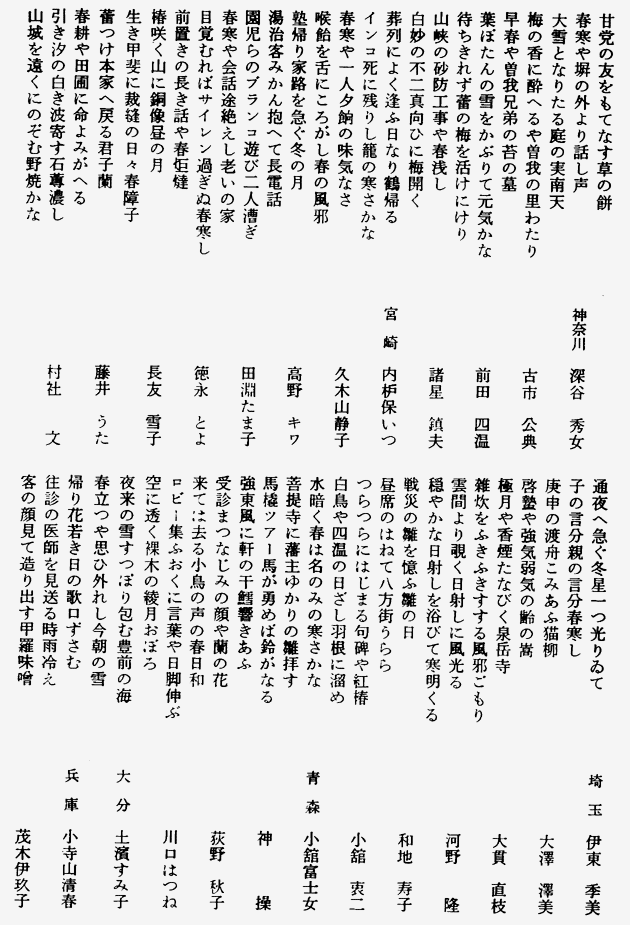 甘党の友をもてなす草の餅
春寒や塀の外より話し声
神奈川 深谷 秀女
大雪となりたる庭の実南天
梅の香に酔へるや曽我の里わたり
古市 公典
早春や曽我兄弟の苔の墓
葉ぼたんの雪をかぶりて元気かな
前田 四温
待ちきれず蕾の梅を活けにけり
山峡の砂防工事や春浅し
諸星 鎮夫
白妙の不二真向ひに梅開く
葬列によく逢ふ日なり鶴帰る
宮崎 内枦保いつ
インコ死に残りし籠の寒さかな
春寒や一人夕餉の味気なさ
久木山静子
喉飴を舌にころがし春の風邪
塾帰り家路を急ぐ冬の月
高野 キワ
湯治客みかん抱へて長電話
園児らのブランコ遊び二人漕ぎ
田淵たま子
春寒や会話途絶えし老いの家
目覚むればサイレン過ぎぬ春寒し
徳永 とよ
前置きの長き話や春炬燵
椿咲く山に銅像昼の月
長友 雪子
生き甲斐に裁縫の日々春障子
蕾つけ本家へ戻る君子蘭
藤井 うた
春耕や田圃に命よみがへる
引き汐の白き波寄す石蓴濃し
村社 文
山城を遠くにのぞむ野焼かな
通夜へ急ぐ冬星一つ光りゐて
埼玉 伊東 季美
子の言分親の言分春寒し
庚申の渡舟こみあふ猫柳
大澤 澤美
啓塾や強気弱気の齢の嵩
極月や香煙たなびく泉岳寺
大貫 直枝
雑炊をふきふきすする風邪ごもり
雲間より覗く日射しに風光る
河野 隆
穏やかな日射しを浴びて寒明くる
戦災の雛を憶ふ雛の日
和地 寿子
昼席のはねて八方街うらら
つらつらにはじまる句碑や紅椿
小舘 衷二
白鳥や四温の日ざし羽根に溜め
水暗く春は名のみの寒さかな
青森 小舘富士女
菩提寺に藩主ゆかりの雛拝す
馬橇ツアー馬が勇めば鈴がなる
神 操
強東風に軒の干鱈響きあふ
受診まつなじみの顔や蘭の花
荻野 秋子
来ては去る小鳥の声の春日和
ロビー集ふおくに言葉や日脚伸ぶ
川口はつね
空に透く裸木の綾月おぼろ
夜来の雪すつぽり包む豊前の海
大分 土濱すみ子
春立つや思ひ外れし今朝の雪
帰り花若き日の歌口ずさむ
兵庫 小寺山清春
往診の医師を見送る時雨冷え
客の顔見て造り出す甲羅味噌
茂木伊玖子